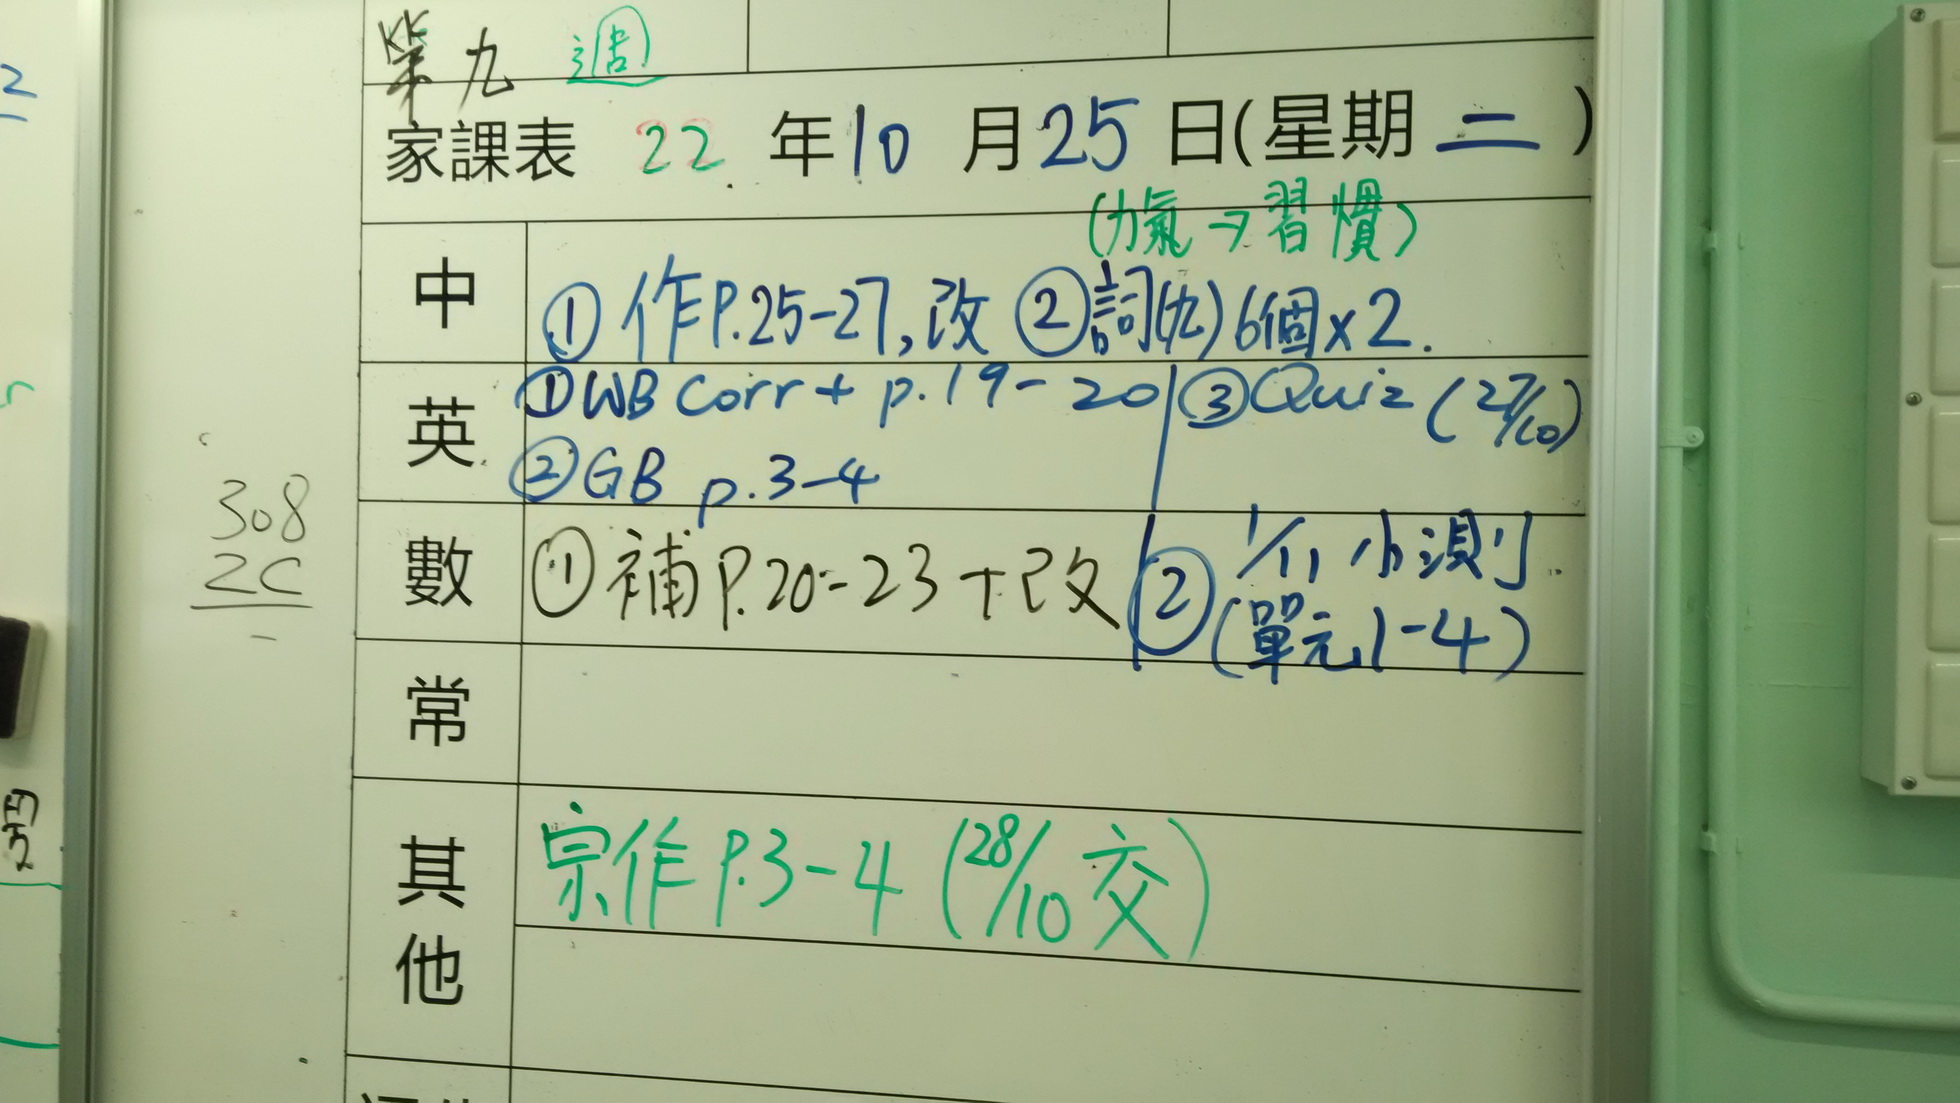 第九週
家課表 22 年 10 月 25 日(星期二)
(力氣→習慣)
中 ①作P.25-27,改 ②詞(九)6個x2.
英 ①WB Corr + p.19-20 ③Quiz (27/10)
②GB p.3-4
數 ①補P.20-23+改 ② 1/11 小測
(單元1-4)
308
2C
常
其他 宗作P.3-4 (28/10 交)